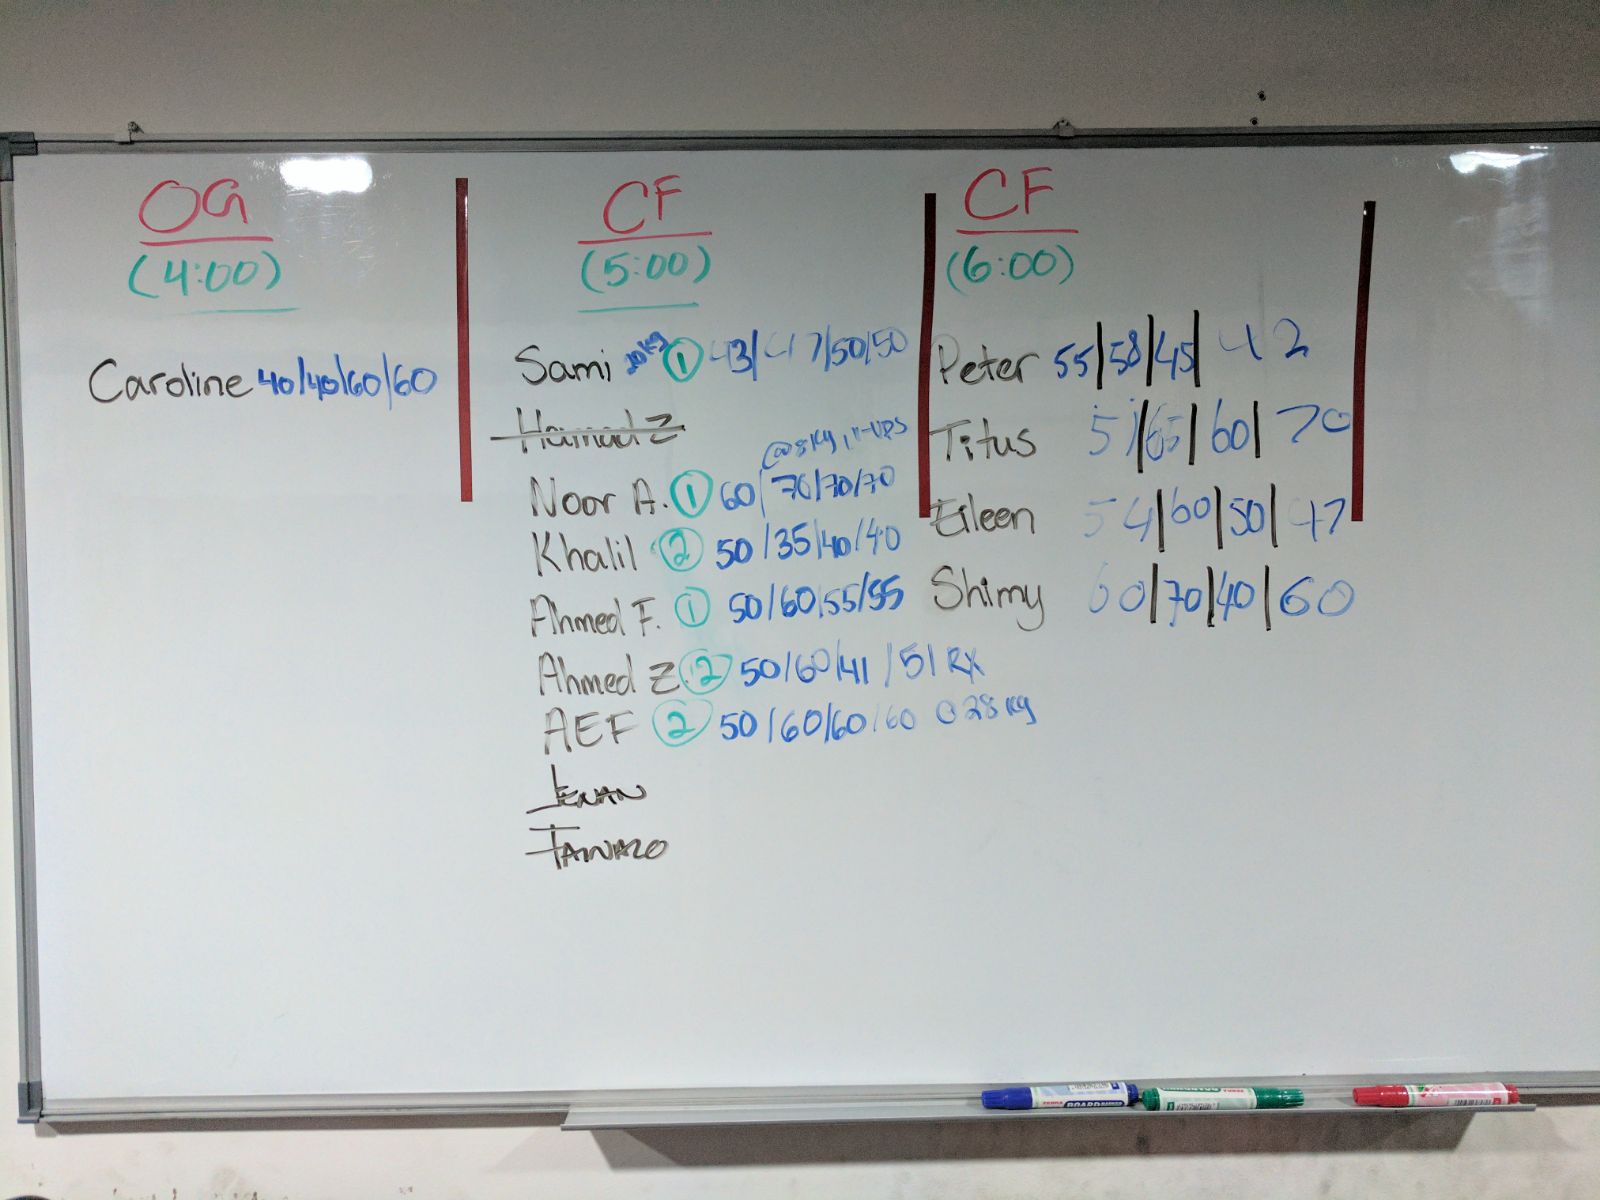 OG
(4:00)
Caroline 40/40/60/60
CF
(5:00)
Sami ① 43/47/50/50
Hamad Z
Noor A. ① 60/70/70/70
Khalil ② 50/35/40/40
Ahmed F. ① 50/60/55/55
Ahmed Z. ② 50/60/41/51 RX
AEF ② 50/60/60/60 @28kg
JENAN
CF
(6:00)
Peter 55|58|45| 42
Titus |65|60|70
Eileen 54|60|50|47
Shimy 60|70|40|60